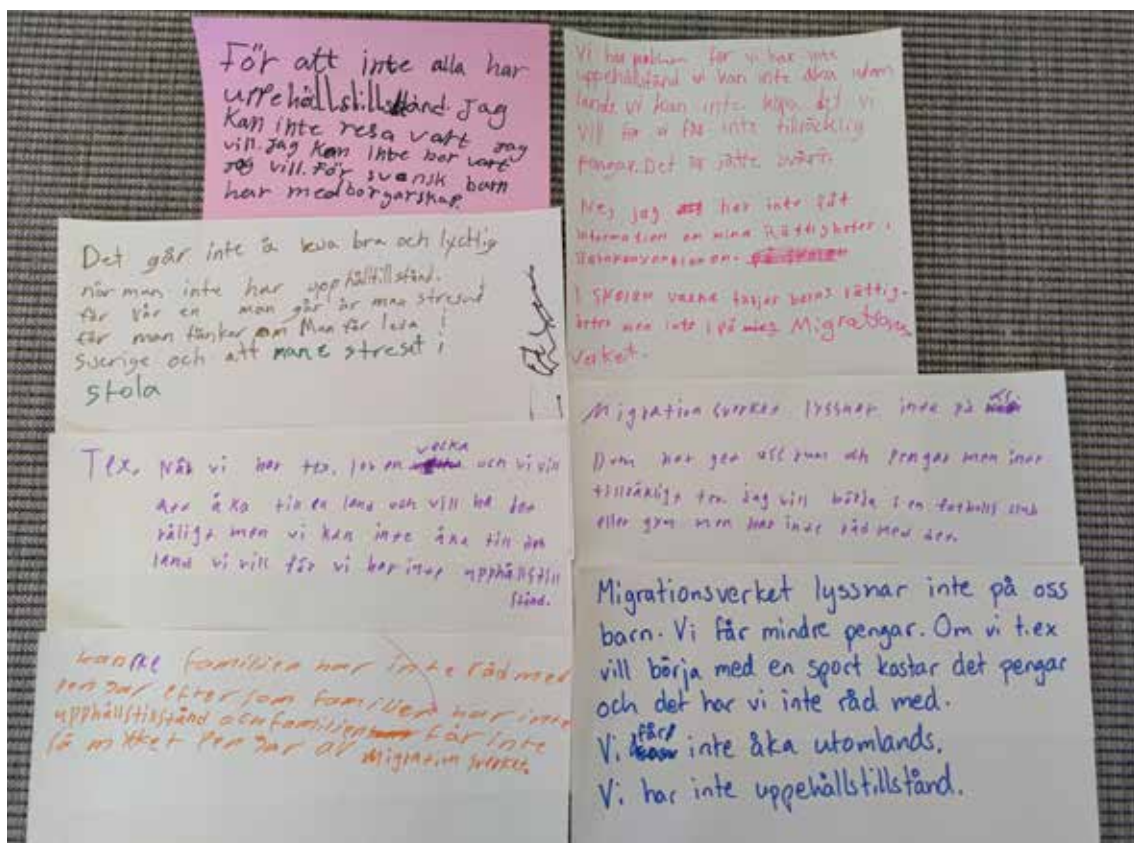 För att inte alla har
uppehållstillstånd. Jag
kan inte resa vart jag
vill. Jag kan inte bor vart
jag vill. För svensk barn
har medborgarskap.
Det går inte å leva bra och lycklig
när man inte har upphålltillstånd.
för vår en man går är man stresad
för man tänker om Man får leva i
Sverige och att man E streset i
skola
Tex. När vi har tex. lov en vecka och vi vill
att åka till en land och vill ha det
roligt men vi kan inte åka till det
land vi vill för vi har inte upphållstill
stånd.
kanske familjen har inte råd med
pengar eftersom familjen har inte
upphållstilstånd och familjen får inte
så mycket pengar av Migration sverket.
Vi har problem för vi har inte
uppehållstånd vi kan inte åka utom
lands vi kan inte köpa det vi
vill för vi får inte tillräcklig
pengar. Det är jätte svårt
Nej jag har inte fåt
information om mina Rättigheter i
Barnkonventionen.
I skolan barns rättig-
heter men inte i på Migrations
verket.
Migration sverket lyssnar inte på oss
Dom har gett oss rum och pengar men inte
tillräkligt tex. jag vill börja i en fotbolls club
eller gym men har inte råd med det.
Migrationsverket lyssnar inte på oss
barn. Vi får mindre pengar. Om vi t.ex
vill börja med en sport kostar det pengar
och det har vi inte råd med.
Vi får inte åka utomlands.
Vi har inte uppehållstillstånd.